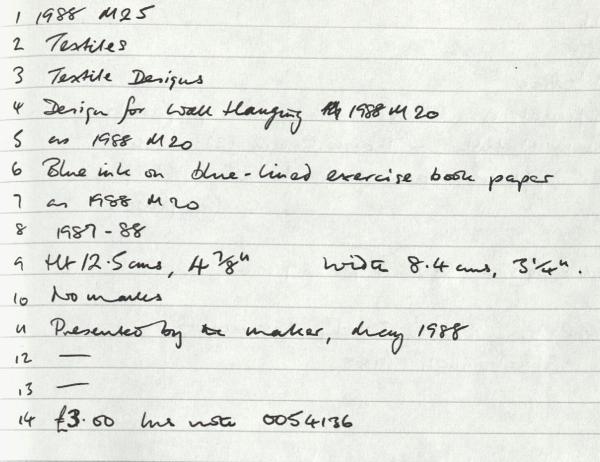 1 1988 M25
2 Textiles
3 Textile Designs
4 Design for Wall Hanging 1988 M20
5 as 1988 M20
6 Blue ink on blue-lined exercise book paper
7 as 1988 M20
8 1987-88
9 Ht 12.5 cms, 4 7/8" Width 8.4 cms, 3 1/4".
10 No marks
11 Presented by maker, May 1988
12 —
13 —
14 £3.00 Ins note 0054136